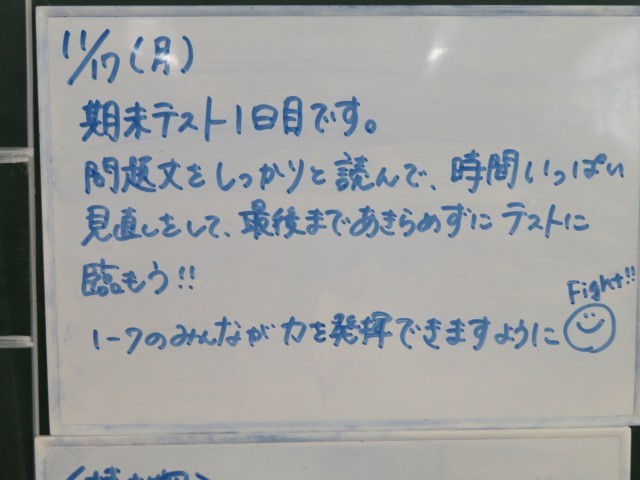 11/17(月)
期末テスト1日目です。
問題文をしっかりと読んで、時間いっぱい
見直しをして、最後まであきらめずにテストに
臨もう!!
Fight!!
1-7のみんなが力を発揮できますように